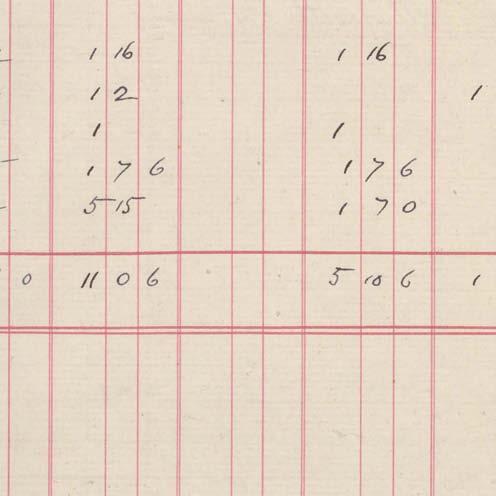 1 16 1 16
1 2 1
1 1
1 7 6 1 7 6
5 15 1 7 0
0 11 0 6 5 10 6 1